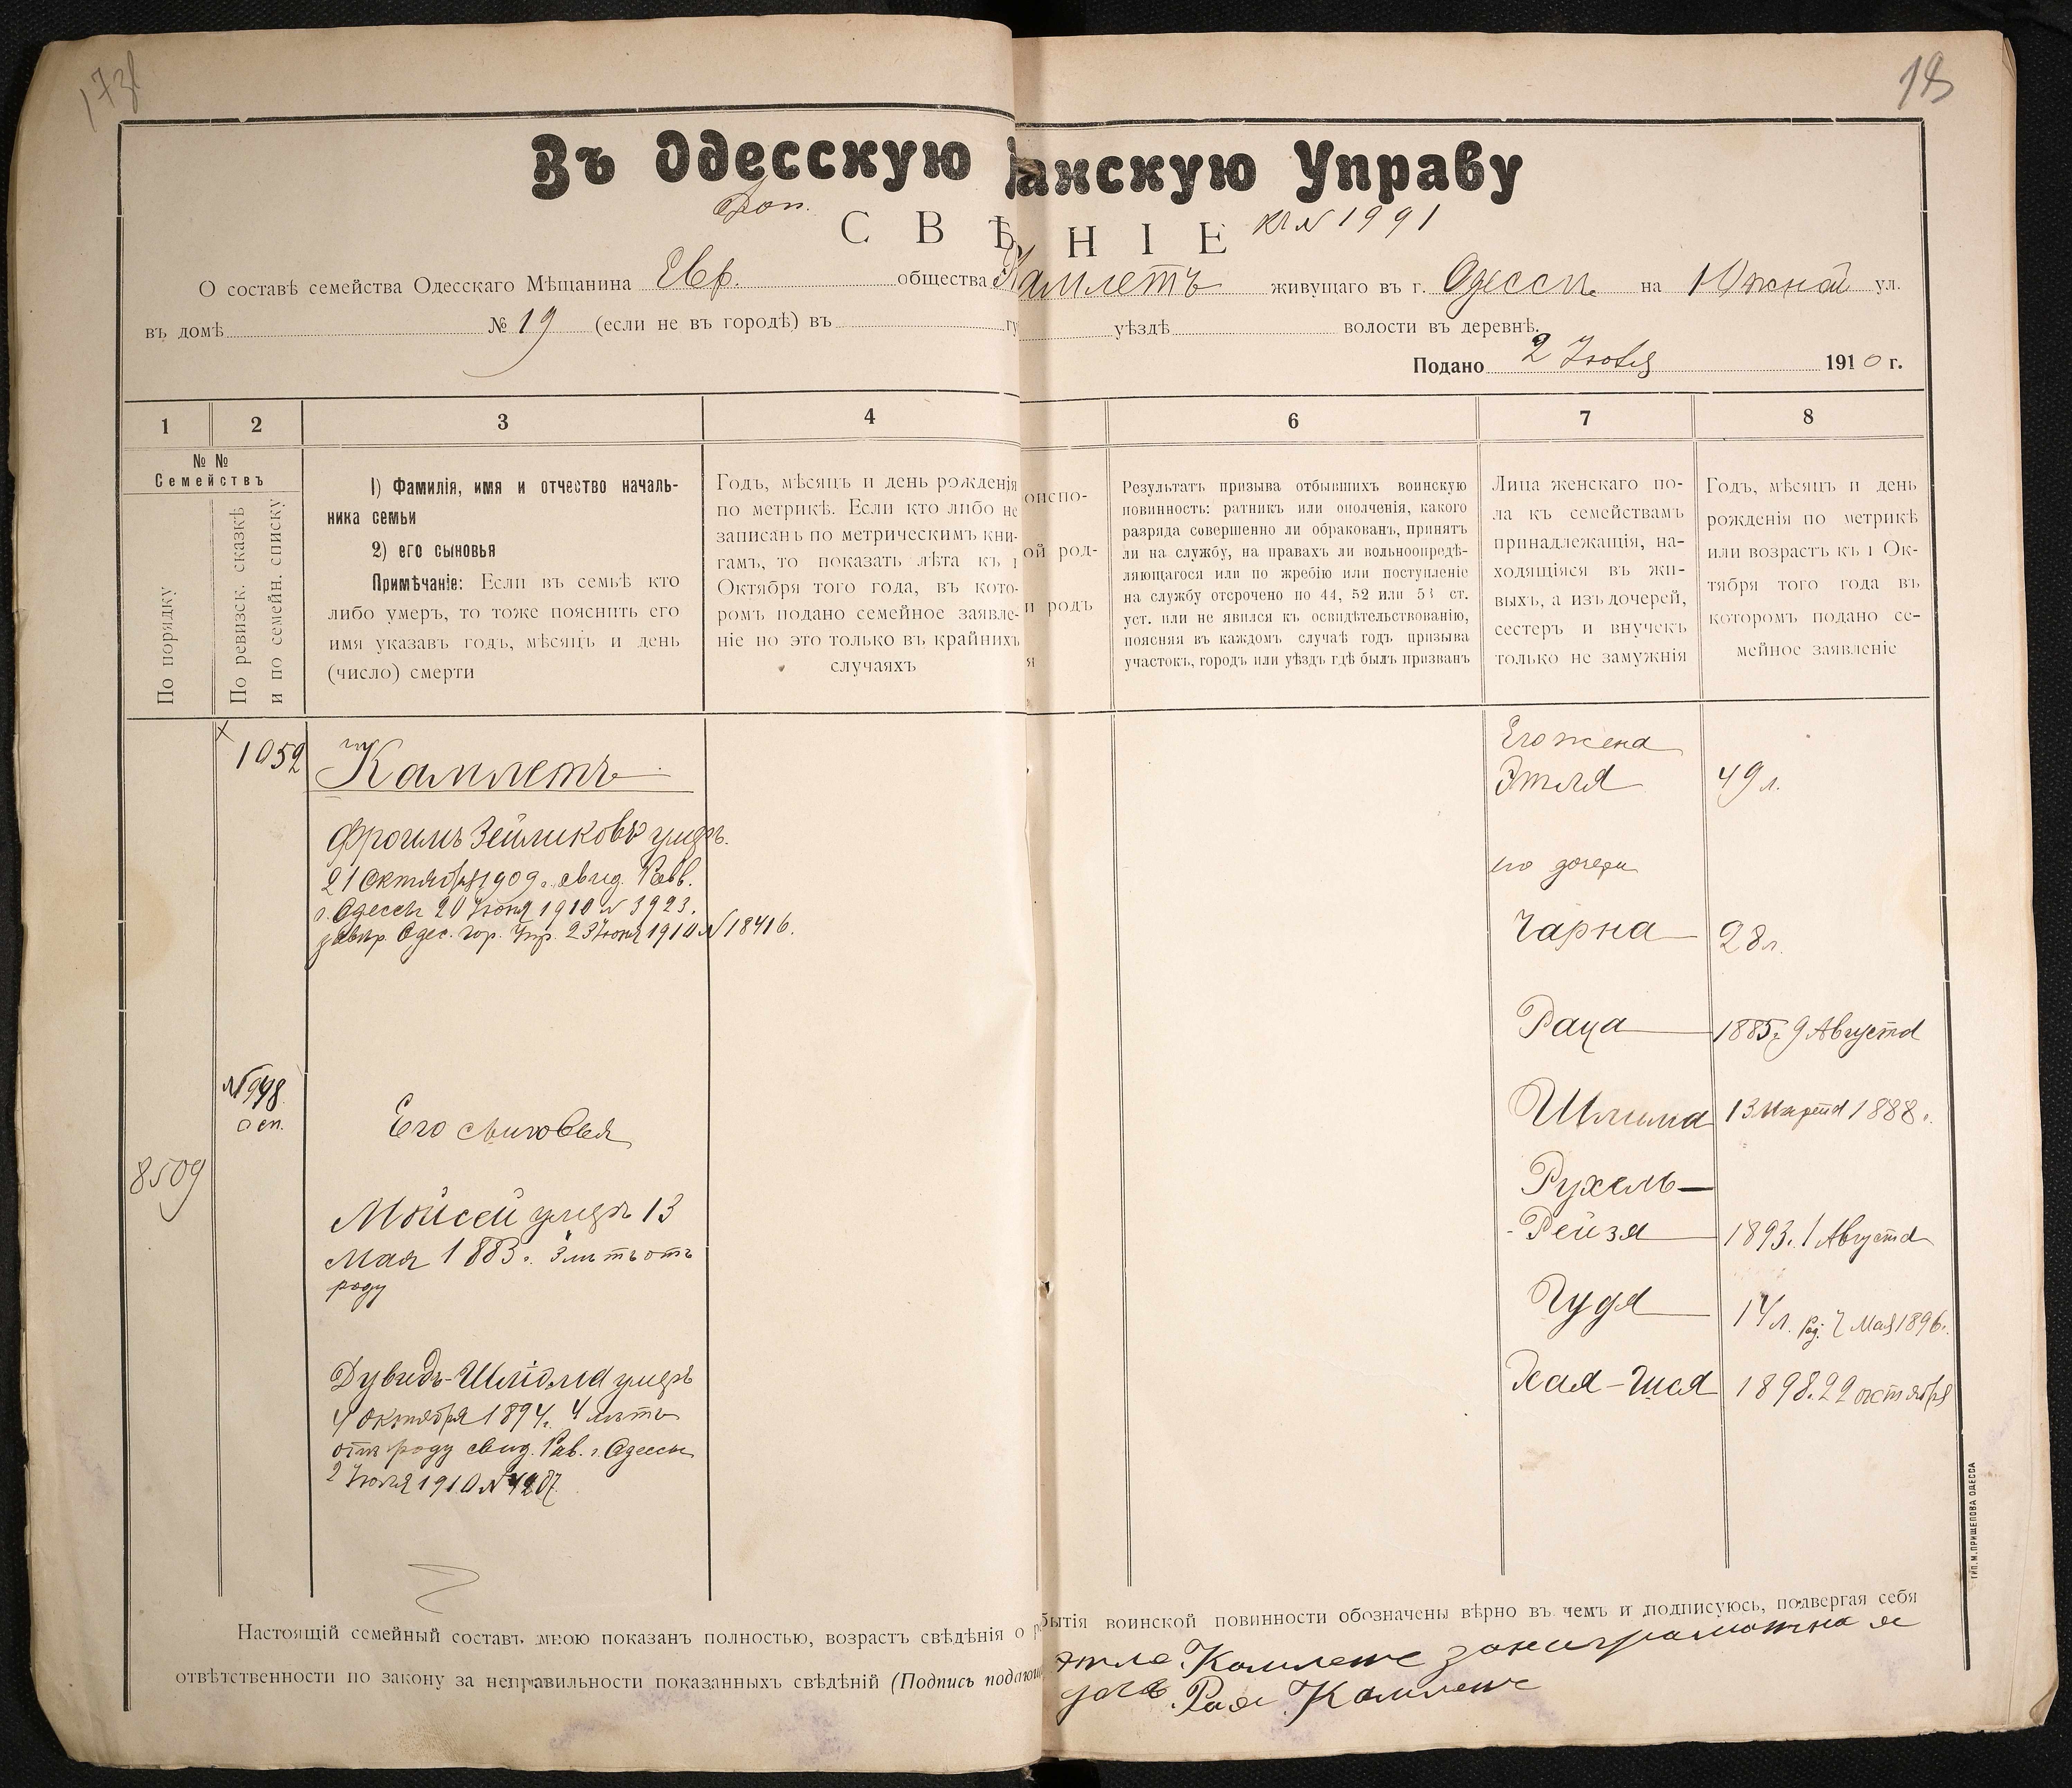 173
18
Въ Одесскую анскую Управу
Доп.
СВѢ НІЕ
№ 1991
О составѣ семейства Одесскаго Мѣщанина Евр. общества Камлетъ живущаго въ г. Одессѣ на Южной ул.
въ домѣ № 19 (если не въ городѣ) въ гу уѣздѣ волости въ деревнѣ
Подано 2 Іюля 1910 г.
1 2 3 4 6 7 8
№ №
Семействъ
По порядку
По ревизск. сказкѣ
и по семейн. списку
1) Фамилія, имя и отчество началь-
ника семьи
2) его сыновья
Примѣчаніе: Если въ семьѣ кто
либо умеръ, то тоже пояснить его
имя указавъ годъ, мѣсяцъ и день
(число) смерти
Годъ, мѣсяцъ и день рожденія
по метрикѣ. Если кто либо не
записанъ по метрическимъ кни-
гамъ, то показать лѣта къ 1
Октября того года, въ кото-
ромъ подано семейное заявле-
ніе но это только въ крайнихъ
случаяхъ
оиспо-
ой род-
и родъ
я
Результатъ призыва отбывшихъ воинскую
повинность: ратникъ или ополченія, какого
разряда совершенно ли обракованъ, принятъ
ли на службу, на правахъ ли вольноопредѣ-
ляющагося или по жребію или поступленіе
на службу отсрочено по 44, 52 или 53 ст.
уст. или не явился къ освидѣтельствованію,
поясняя въ каждомъ случаѣ годъ призыва
участокъ, городъ или уѣздъ гдѣ былъ призванъ
Лица женскаго по-
ла къ семействамъ
принадлежащія, на-
ходящіяся въ жи-
выхъ, а изъ дочерей,
сестеръ и внучекъ
только не замужнія
Годъ, мѣсяцъ и день
рожденія по метрикѣ
или возрастъ къ 1 Ок-
тября того года въ
которомъ подано се-
мейное заявленіе
1052
Камлетъ
Фроимъ Зейликовъ умеръ
21 Октября 1909 г. свид. Равв.
г. Одессы 20 Іюня 1910 № 3923.
завѣр. Одес. гор. Упр. 23 Іюня 1910 № 18416.
№ 998
8509
Его сыновья
Мойсей умеръ 13
Мая 1883 г. 3 лѣтъ отъ
роду
Дувидъ-Шлема умеръ
4 Октября 1894 г. 4 лѣтъ
отъ роду свид. Рав. г. Одессы
2 Іюля 1910 № 4207.
Его жена
Этля 49 л.
его дочери
Чарна 28 л.
Раца 1885 г. 9 Августа
Шлима 13 Марта 1888 г.
Рухель-
-Рейзя 1893 г. 1 Августа
Гудя 14 л. род. 7 Мая 1896 г.
Хая-Шая 1898. 22 октября
Настоящій семейный составъ мною показанъ полностью, возрастъ свѣдѣнія о бытія воинской повинности обозначены вѣрно въ чемъ и подписуюсь, подвергая себя
отвѣтственности по закону за неправильности показанныхъ свѣдѣній (Подпись подающ
Этля Камлетъ за неграмотная
дочь Рая Камлетъ
ТИП. М. ПРИЩЕПОВА ОДЕССА